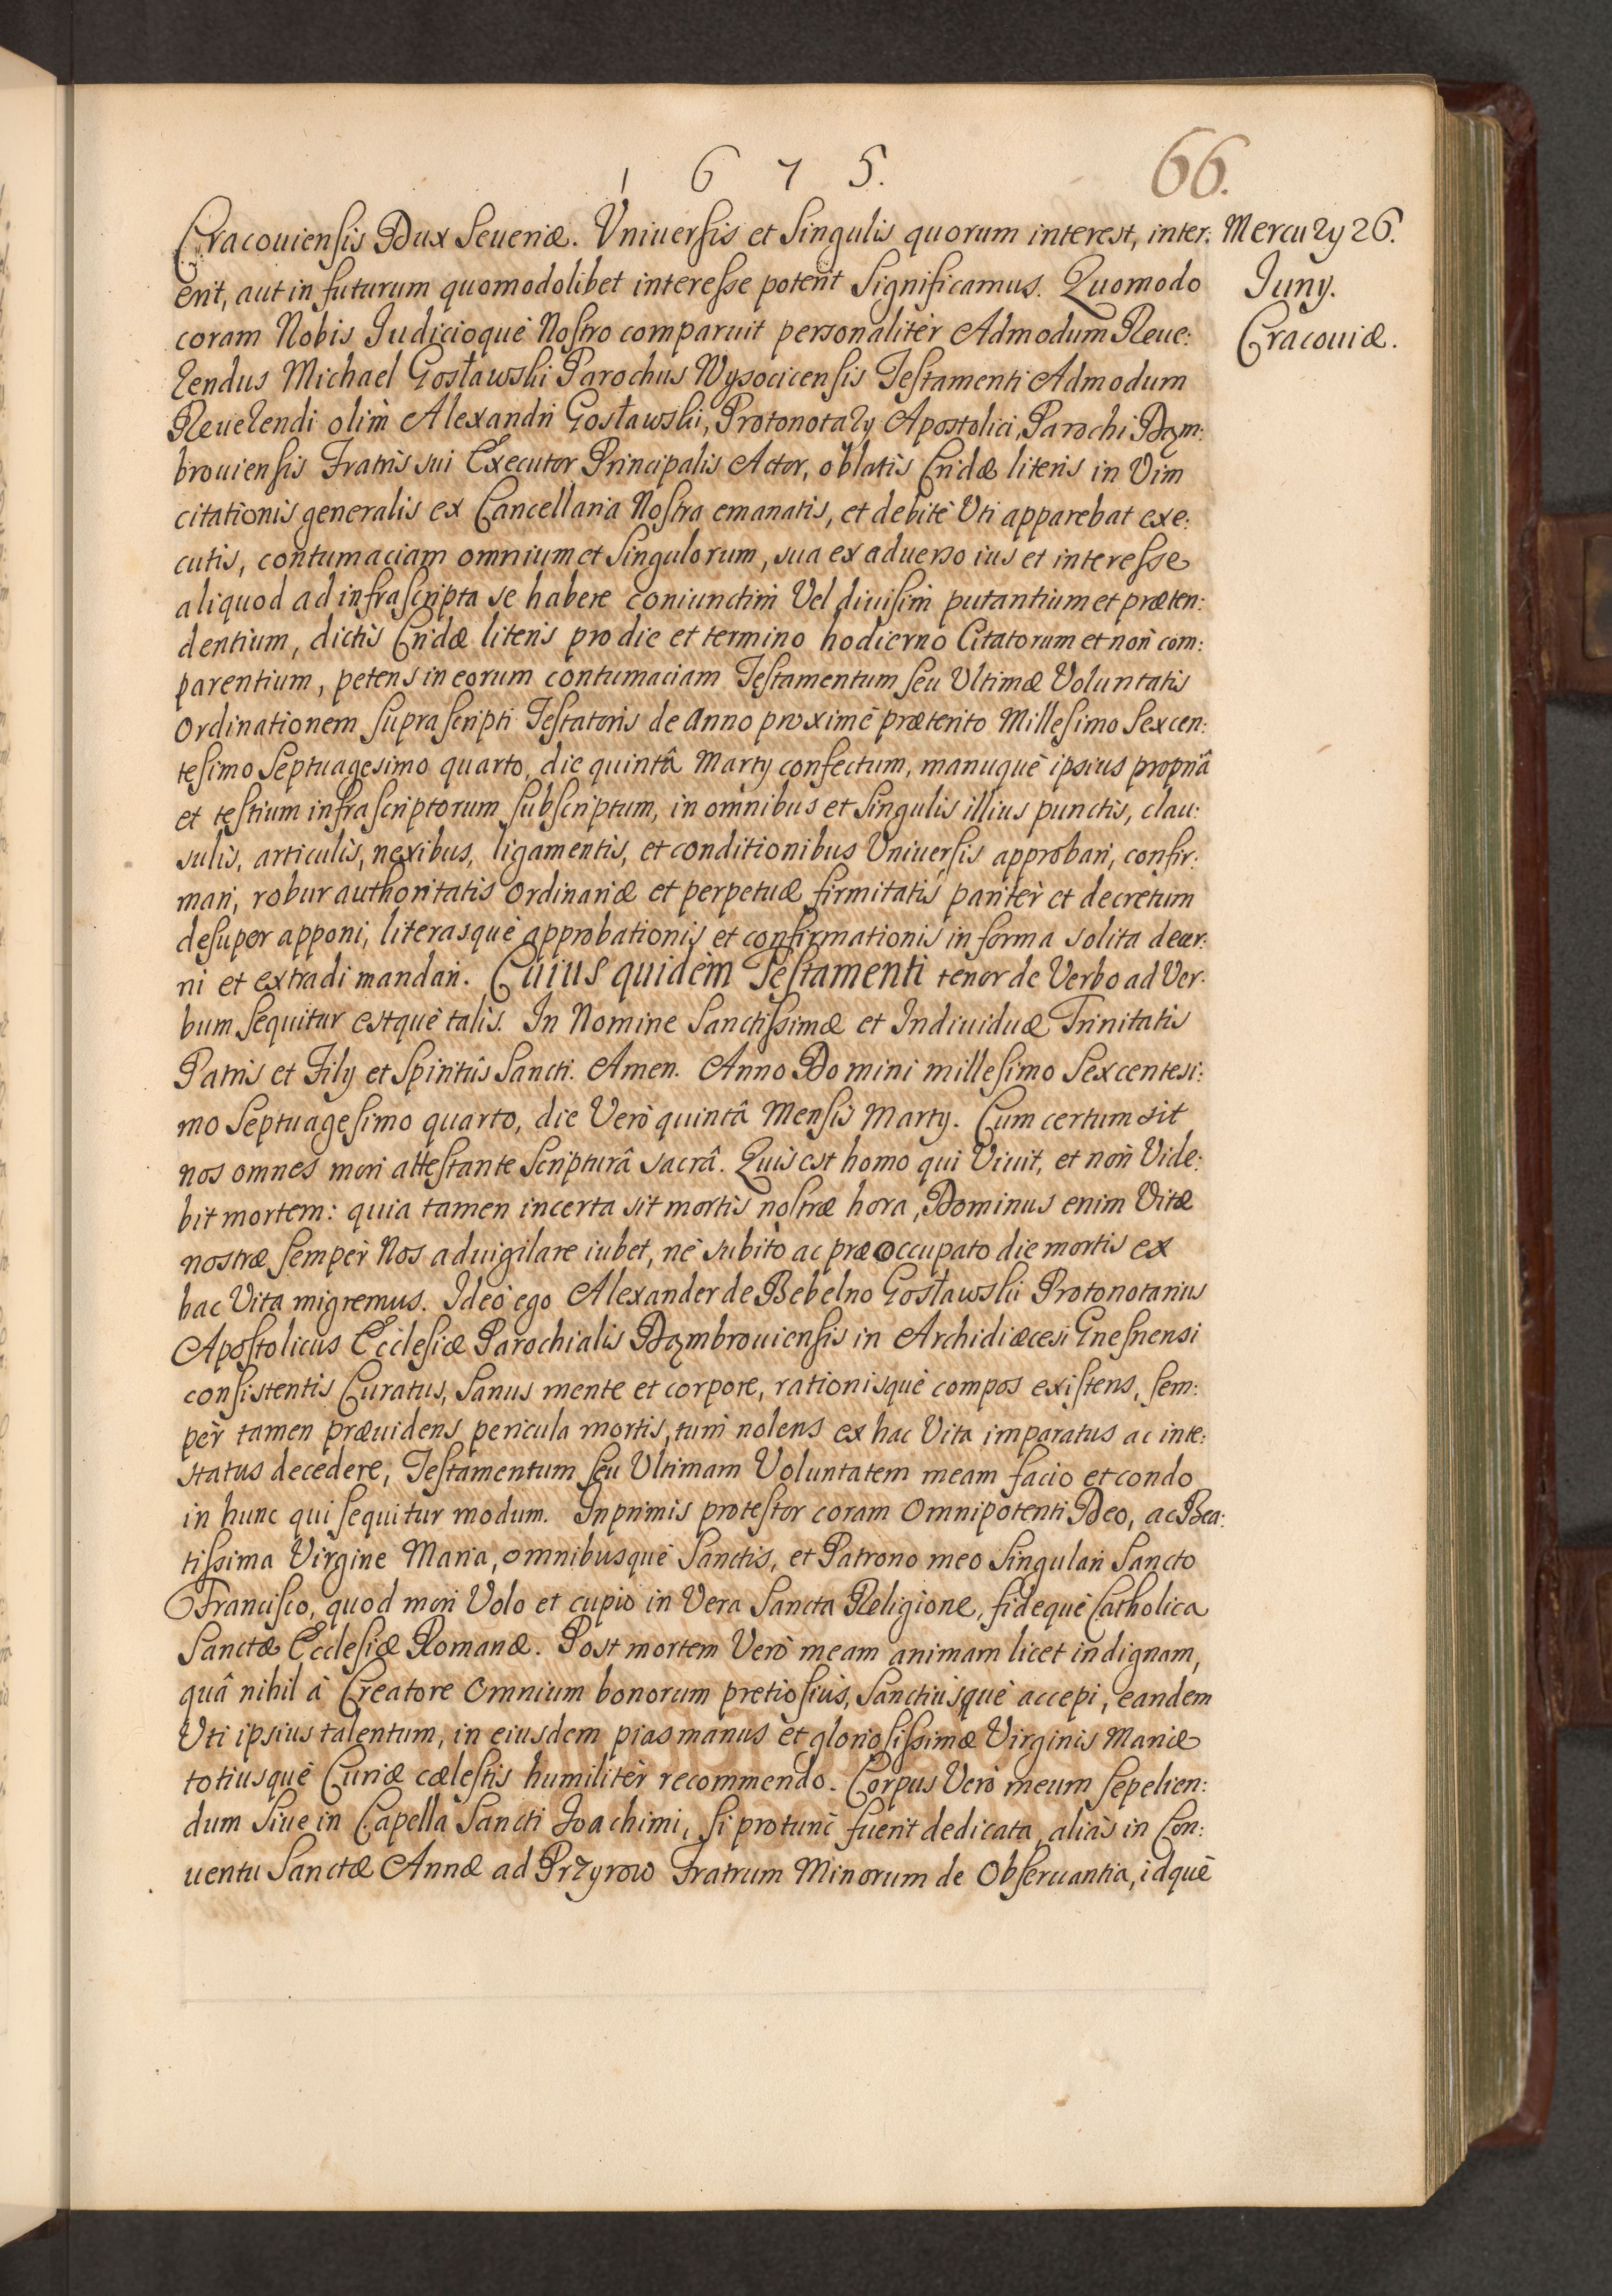 1675.
66.
Cracouiensis Dux Seueriæ. Vniuersis et Singulis quorum interest, inter:
erit, aut in futurum quomodolibet interesse poterit Significamus. Quomodo
coram Nobis Iudicioquè Nostro comparuit personalitèr Admodum Reue:
rendus Michael Gosławski Parochus Wysocicensis Testamenti Admodum
Reuerendi olim Alexandri Gosławski, Protonotary Apostolici, Parochi Dąm:
brouiensis Fratris sui Executor Principalis Actor, oblatis Cridæ literis in Vim
citationis generalis ex Cancellaria Nostra emanatis, et debitè Vti apparebat exe:
cutis, contumaciam omnium et Singulorum, sua ex aduerso ius et interesse
aliquod ad infrascripta se habere coniunctim Vel diuisim putantium et præten:
dentium, dictis Cridæ literis pro die et termino hodierno Citatorum et non com:
parentium, petens in eorum contumaciam Testamentum seu Vltimæ Voluntatis
Ordinationem suprascripti Testatoris de Anno proximè præterito Millesimo Sexcen:
tesimo Septuagesimo quarto, die quintâ Marty confectum, manuquè ipsius propriâ
et testium infrascriptorum subscriptum, in omnibus et Singulis illius punctis, clau:
sulis, articulis, nexibus, ligamentis, et conditionibus Vniuersis approbari, confir:
mari, robur authoritatis Ordinariæ et perpetuæ firmitatis paritèr et decretum
desuper apponi, literasquè approbationis et confirmationis in forma solita decer:
ni et extradi mandari. Cuius quidem Testamenti tenor de Verbo ad Ver:
bum sequitur estquè talis. In Nomine Sanctissimæ et Indiuiduæ Trinitatis
Patris et Fily et Spiritûs Sancti. Amen. Anno Domini millesimo Sexcentesi:
mo Septuagesimo quarto, die Verò quintâ Mensis Marty. Cum certum sit
nos omnes mori attestante Scripturâ sacrâ. Quis est homo qui Viuit, et non Vide:
bit mortem: quia tamen incerta sit mortis nostræ hora, Dominus enim Vitæ
nostræ semper Nos aduigilare iubet, nè subitò ac præoccupato die mortis ex
hac Vita migremus. Ideò ego Alexander de Bebelno Gosławski Protonotarius
Apostolicus Ecclesiæ Parochialis Dąmbrouiensis in Archidiæcesi Gnesnensi
consistentis Curatus, Sanus mente et corpore, rationisquè compos existens, sem:
pèr tamen præuidens pericula mortis, tum nolens ex hac Vita imparatus ac inte:
status decedere, Testamentum seu Vltimam Voluntatem meam facio et condo
in hunc qui sequitur modum. Inprimis protestor coram Omnipotenti Deo, ac Bea:
tissima Virgine Maria, omnibusquè Sanctis, et Patrono meo Singulari Sancto
Francisco, quod mori Volo et cupio in Vera Sancta Religione, fidequè Catholica
Sanctæ Ecclesiæ Romanæ. Post mortem Verò meam animam licet indignam,
quâ nihil à Creatore Omnium bonorum pretiosius, Sanctiusquè accepi, eandem
Vti ipsius talentum, in eiusdem pias manus et gloriosissimæ Virginis Mariæ
totiusquè Curiæ cælestis humilitèr recommendo. Corpus Verò meum sepelien:
dum Siue in Capella Sancti Ioachimi, si protunc fuerit dedicata, aliàs in Con:
uentu Sanctæ Annæ ad Przyrow Fratrum Minorum de Obseruantia, idquè
Mercury 26.
Iuny.
Cracouiæ.